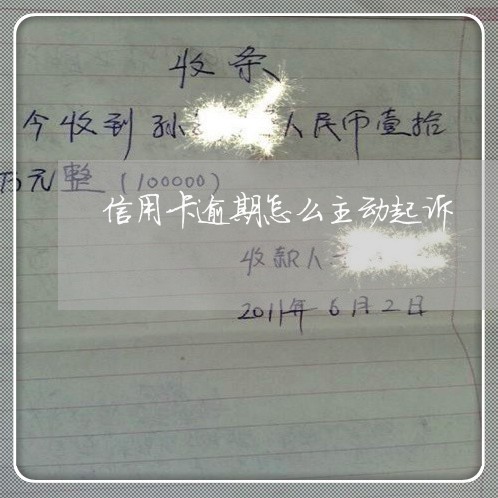 收条
今收到孙 人民币壹拾
万元整（100000）
信用卡逾期怎么主动起诉
收款人
2011年6月2日